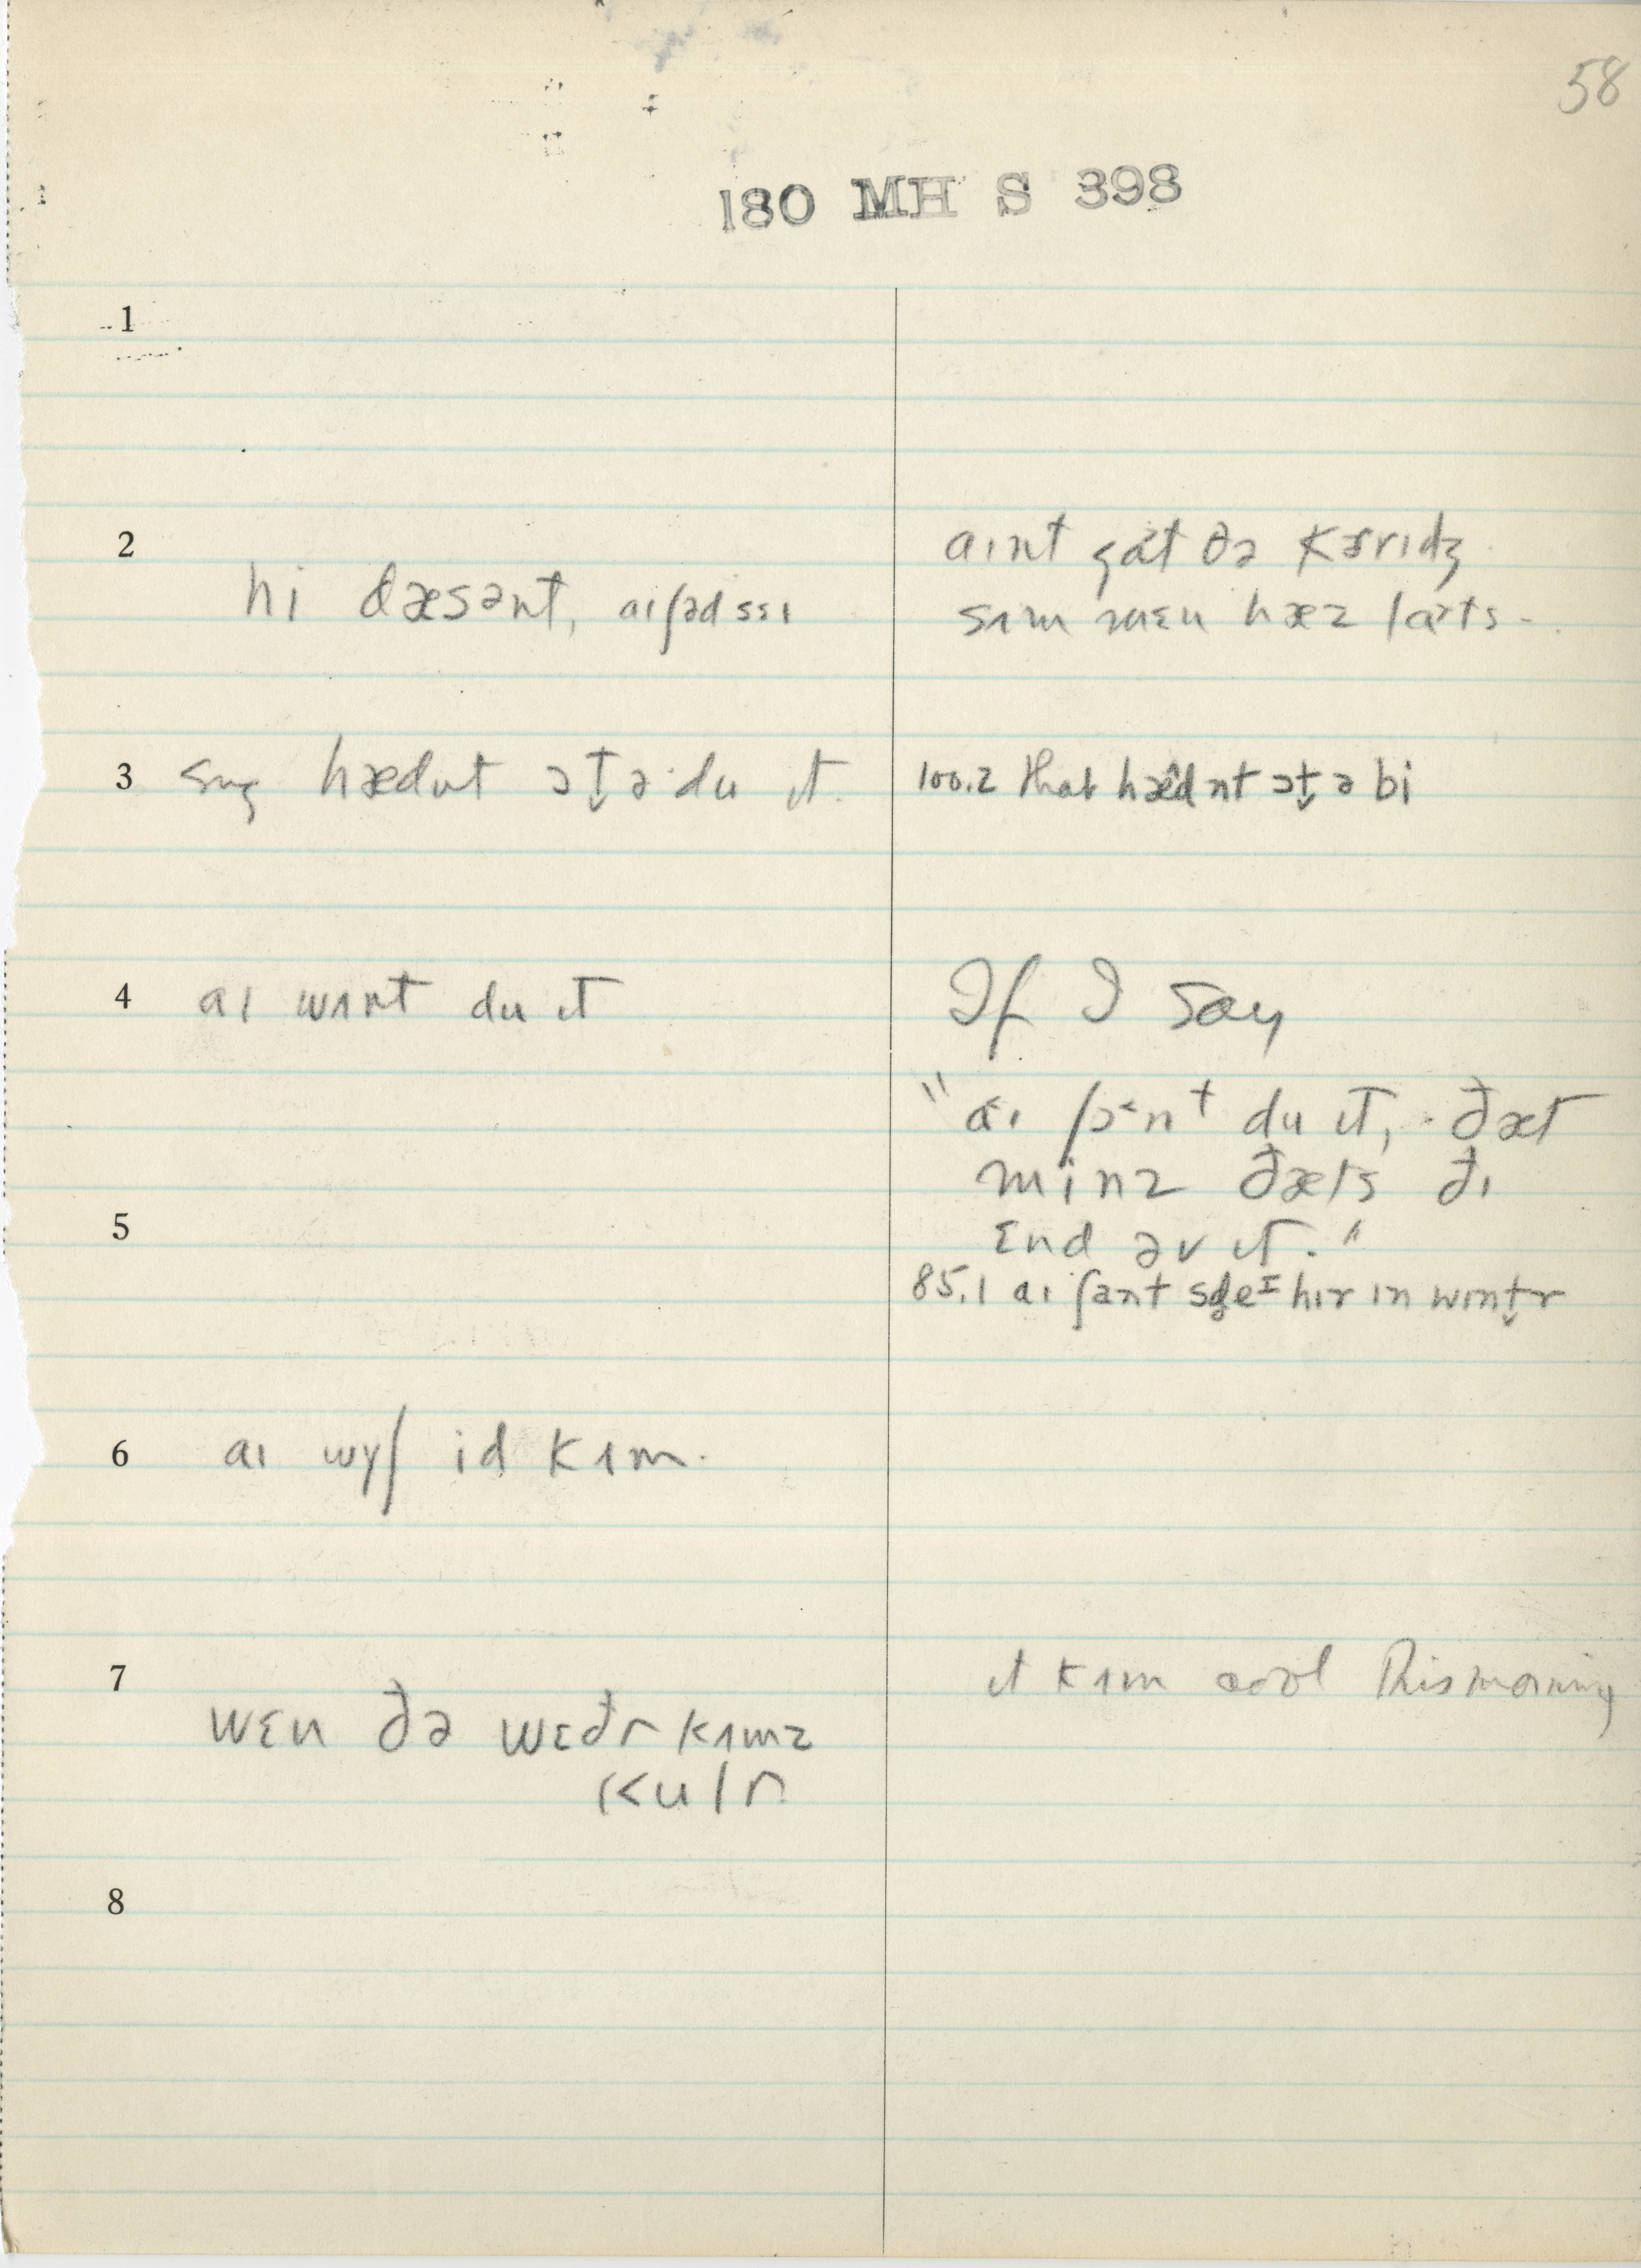 58
180 MH S 398
1
2
hi dæsənt, aɪʃəd sɛɪ
aɪnt gat ðə kɜrɪdʒ
sʌm mɛn hæz lats -
3
hædnt ɔt̬ ə du ɪt.
100.2 that hædnt ɔt̬ ə bi
4
aɪ wʌnt du ɪt
If I say
"aɪ ʃɔ˂nt du ɪt, ðæt
minz ðæts ðɪ
5
ɛnd əv ɪt."
85.1 aɪ ʃant hɪr ɪn wɪnt̬r
6
aɪ wyʃ id kʌm.
7
wɛn ðə wɛðr kʌmz
kulr
ɪt kʌm cool this morning
8